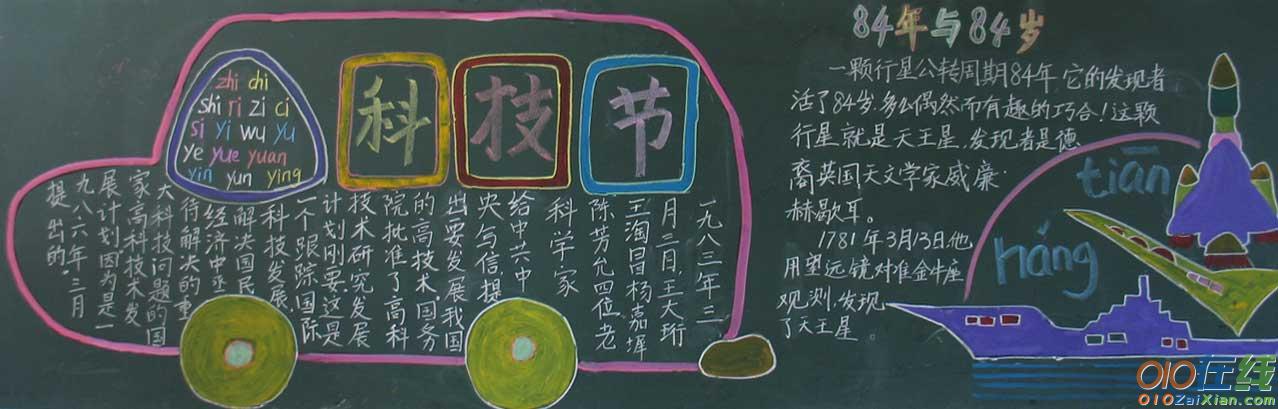 zhi chi
shi ri zi ci
si yi wu yu
ye yue yuan
yin yun ying
科技节
一九八三年三
月二日,王大珩
王淘昌杨嘉墀
陈芳允四位老
科学家
给中共中
央与信,提
出要发展我国
的高技术,国务
院批准了高科
技术研究发展
计划刚要,这是
一个跟踪国际
科技发展,
解决国民
经济中亟
待解决的重
大科技问题的国
家高科技术发
展计划因为是一
九八六年,三月
提出的。
84年与84岁
一颗行星公转周期84年,它的发现者
活了84岁,多么偶然而有趣的巧合!这颗
行星就是天王星,发现者是德
裔英国天文学家威廉·
赫歇耳。
1781年3月13日,他
用望远镜对准金牛座
观测,发现
了天王星。
tiān
háng
010在线
010ZaiXian.com